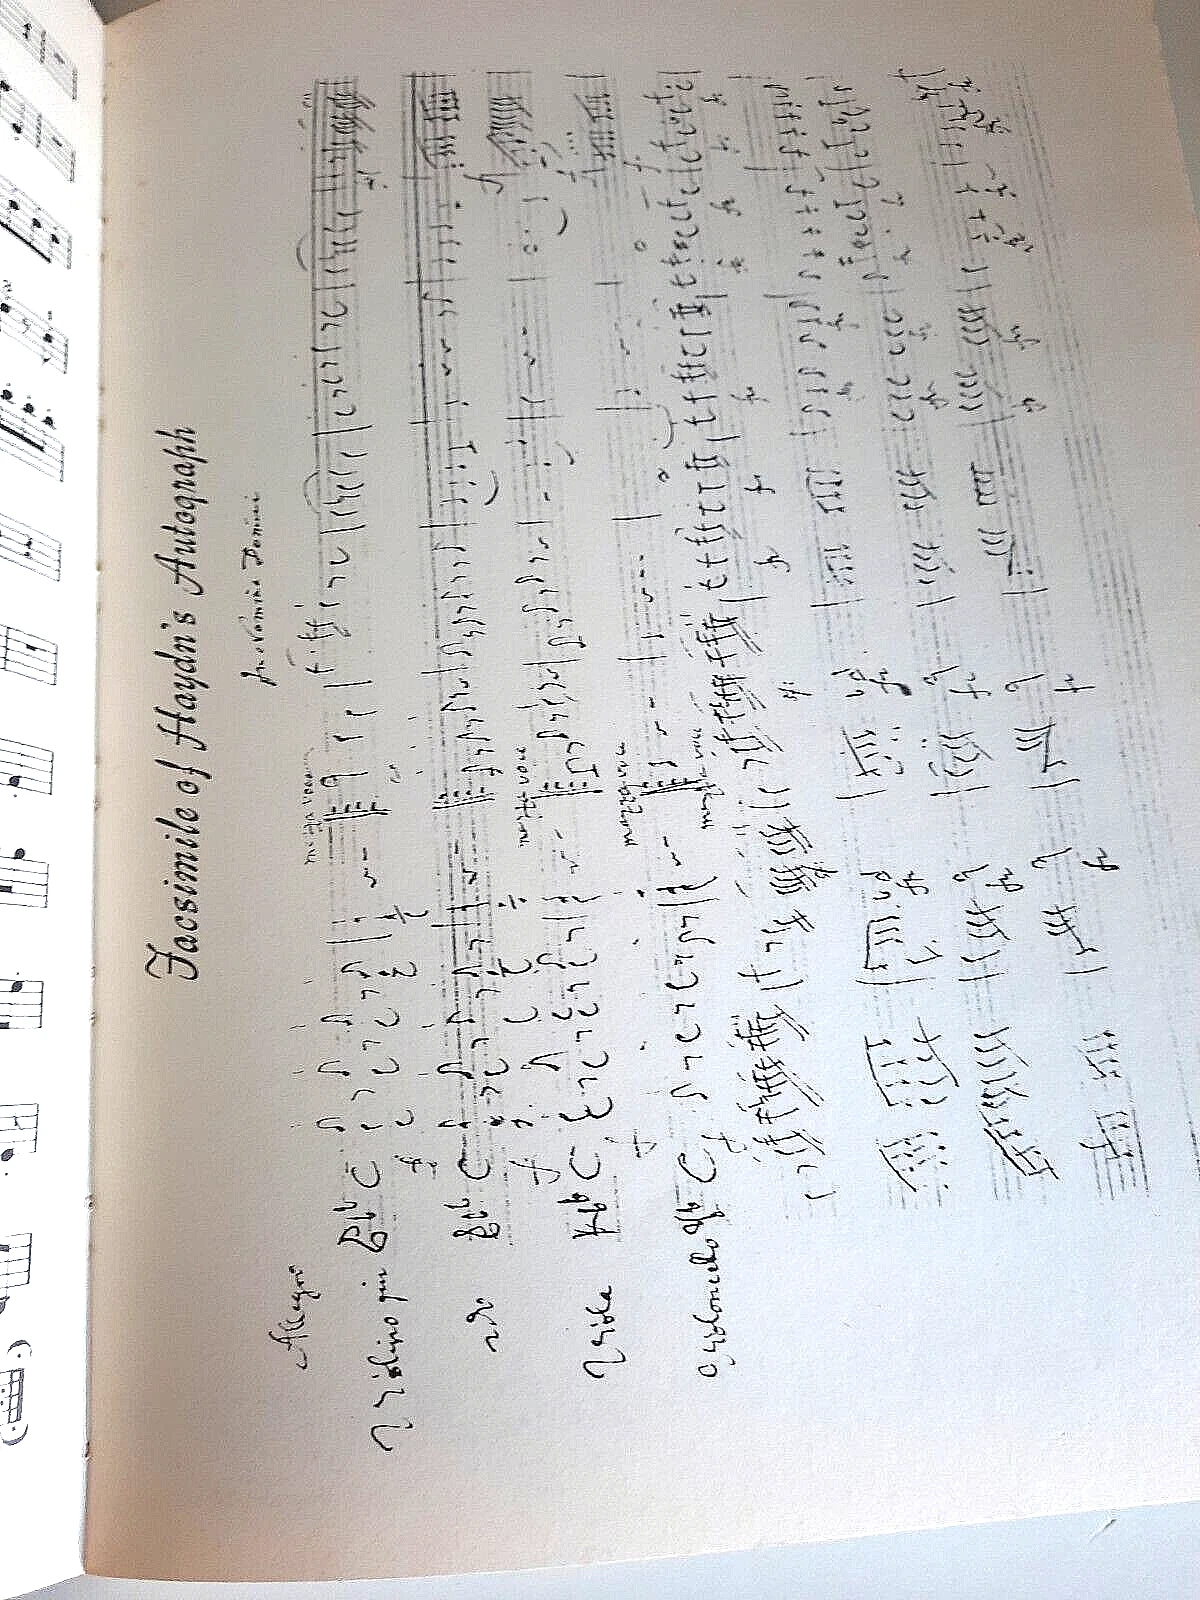 Facsimile of Haydn's Autograph
In Nomine Domini
Allegro
mezza voce
Violino pmo
2do
mezza voce
Viola
mezza voce
Violoncello
mezza voce